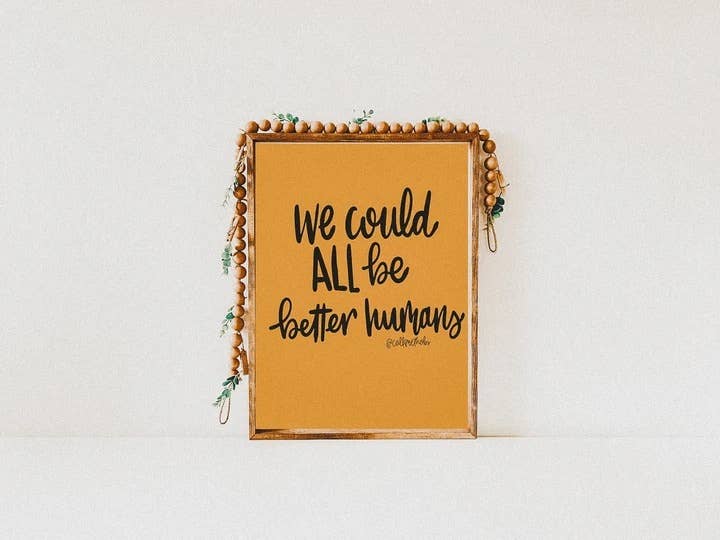 We could
ALL be
better humans